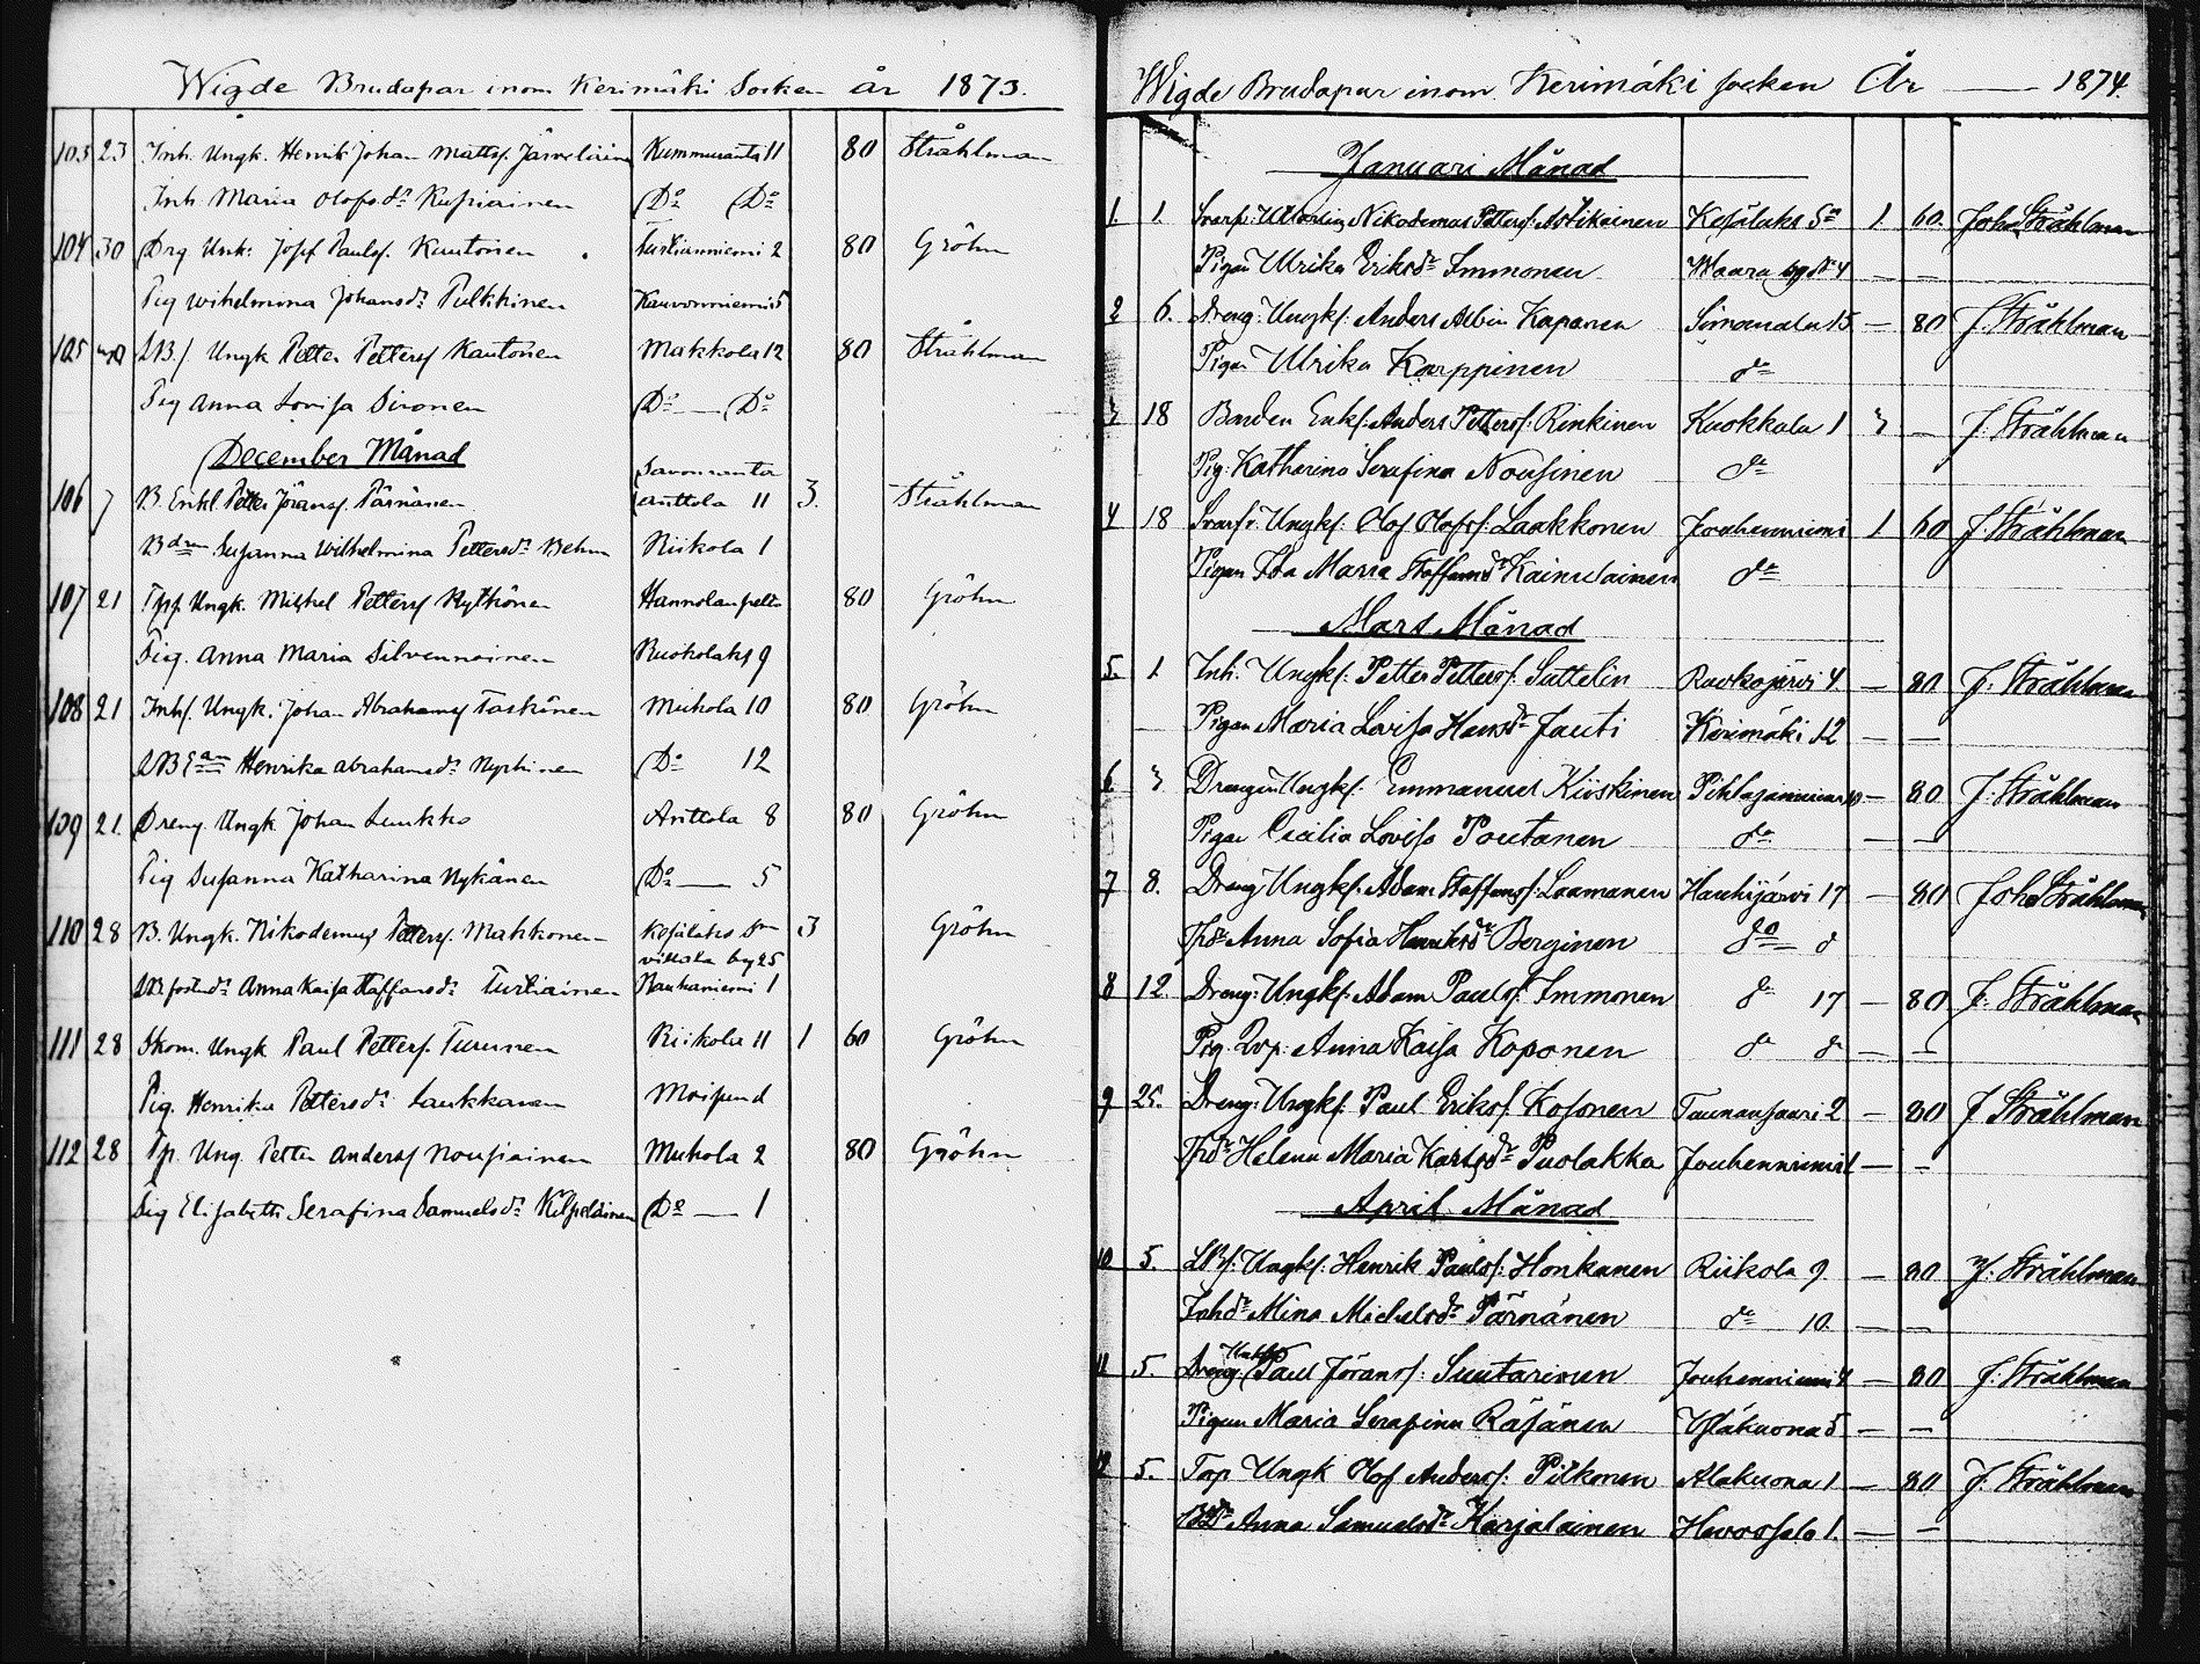 Wigde Brudapar inom Kerimäki Socken år 1873.
103 23 Inh. Ungk. Henrik Johan Mattsf. Järveläinen Kummuranta 11 80 Stråhlman
Inh. Maria Olofsdr Kupiainen Do Do
104 30 Drg Unk: Josef Paulsf. Kautonen 2 80 Gröhn
Pig Wilhelmina Johansdr Pulkkinen Kauvonniemi 5
105 LBf Ungk Petter Pettersf Kautonen Makkola 12 80 Stråhlman
Pig Anna Lovisa Sironen Do — Do
December Månad
Savonranta
106 7 B. Enkl. Petter Jöransf. Pärnänen Anttola 11 3. Stråhlman
Bdrn Susanna Wilhelmina Pettersdr Behm Riikola 1
107 21 Ungk. Mickel Pettersf Nythönen 80 Gröhn
Pig. Anna Maria Silvennoinen Ruokolaks 9
108 21 Inhf. Ungk. Johan Abrahamsf Taskinen Muhola 10 80 Gröhn
Henrika Abrahamsdr Nyrhinen Do 12
109 21. Dreng. Ungk Johan Luukko Anttola 8 80 Gröhn
Pig Susanna Katharina Nykänen Do — 5
110 28 B. Ungk. Nikodemus Pettersf. Makkonen Kesälaks Sn 3 Gröhn
Villala by 25
Anna Kaisa Staffansdr Turtiainen Rauhaniemi 1
111 28 Skom. Ungk Paul Pettersf. Turunen Riikola 11 1 60 Gröhn
Pig. Henrika Pettersdr Laukkanen Moisund
112 28 Tp. Ung. Petter Andersf Nousiainen Muhola 2 80 Gröhn
Pig Elisabeth Serafina Samuelsdr Kilpeläinen Do — 1
Wigde Brudapar inom Kerimäki socken År — 1874.
Januari Månad
1. 1. Nikodemus Pettersf. Astikainen Kesälaks Sn 1 60. Joh. Stråhlman
Pigan Ulrika Eriksdr Immonen Waara by No 4 — —
2 6. Dreng: Ungkf: Anders Albin Kaponen Simanala 15 — 80 J. Stråhlman
Pigan Ulrika Karppinen do
3 18 Bonden Enkf. Anders Pettersf: Rinkinen Kuokkala 1 3 — J. Stråhlman
Pig: Katharina Serafina Nousinen do
4 18 Ungkf: Olof Olofsf: Laakkonen Jouhenniemi 1 60 J. Stråhlman
Pigan Ida Maria Staffansdr Kainulainen do
Mars Månad
5. 1. Inh: Ungkf: Petter Pettersf: Suttelin Ruokojärvi 4 — 80 J. Stråhlman
Pigan Maria Lovisa Hansdr Jauti Kerimäki 12 — —
6. 3. Drengen Ungkf. Emmanuel Kiiskinen Pihlajaniemi 10 — 80 J. Stråhlman
Pigan Cecilia Lovisa Poutanen do — —
7 8. Dreng Ungkf. Adam Staffansf: Laamanen Hauhijärvi 17 — 80 Joh Stråhlman
Anna Sofia Henriksdr Berginen do d
8 12 Dreng: Ungkf. Adam Paulsf. Immonen do 17 — 80 J. Stråhlman
Pig. Anna Kaisa Koponen do do — —
9 25. Dreng: Ungkf: Paul Eriksf. Kosonen Taunansaari 2 — 80 J Stråhlman
Helena Maria Karlsdr Puolakka Jouhenniemi 1 — —
April Månad
10 5. LBf: Ungkf: Henrik Paulsf: Honkanen Riikola 9. — 80 J. Stråhlman
Inhdr Mina Michelsdr Pärnänen do 10. — —
11 5. Dreng. Ungkf Paul Jöransf: Suutarinen Jouhenniemi 4 — 80 J. Stråhlman
Pigan Maria Serafina Räsänen Yläkuona 5 — —
12 5. Tap Ungk Olof Andersf: Pitkonen Alakuona 1 — 80 J. Stråhlman
Bdr Anna Samuelsdr Karjalainen Hevossalo 1. — —